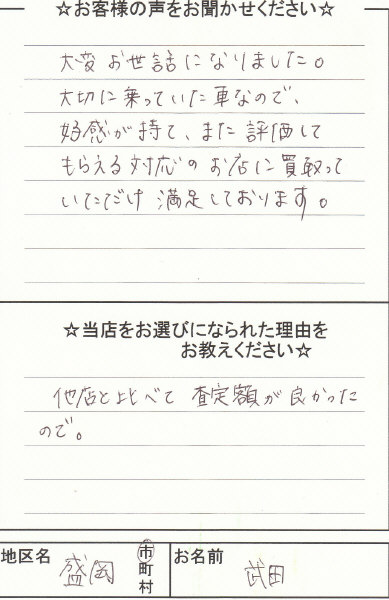 ☆お客様の声をお聞かせください☆
大変お世話になりました。
大切に乗っていた車なので、
好感が持て、また評価して
もらえる対応のお店に買取って
いただけ満足しております。
☆当店をお選びになられた理由を
お教えください☆
他店と比べて査定額が良かった
ので。
地区名 盛岡 市町村 お名前 武田